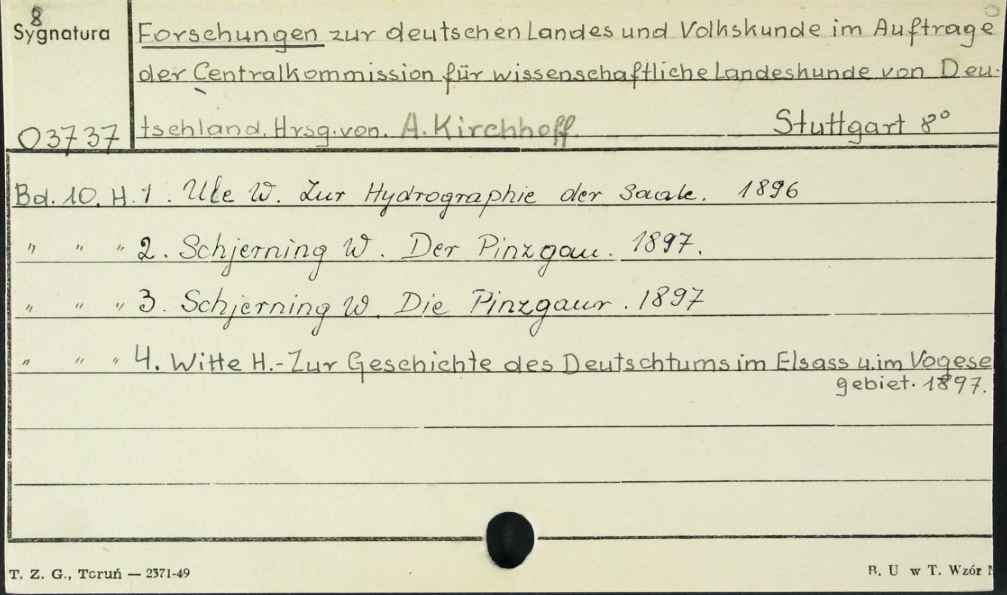 8
Sygnatura
03737
Forschungen zur deutschen Landes und Volkskunde im Auftrage
der Centralkommission für wissenschaftliche Landeskunde von Deu-
tschland. Hrsg. von. A. Kirchhoff. Stuttgart 8°
Bd. 10. H. 1. Ule W. Zur Hydrographie der Saale. 1896
" " " 2. Schjerning W. Der Pinzgau. 1897.
" " " 3. Schjerning W. Die Pinzgaur. 1897
" " " 4. Witte H.-Zur Geschichte des Deutschtums im Elsass u. im Vogese
gebiet. 1897.
T. Z. G., Toruń — 2371-49
B. U w T. Wzór